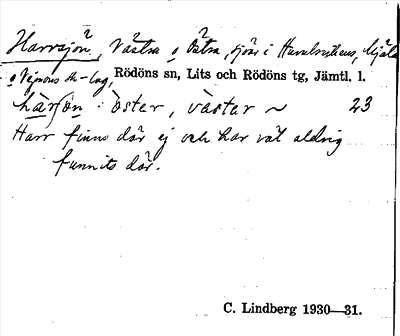 Harrsjön, Västra o Östra, sjöar i
o Vejmons sk-lag, Rödöns sn, Lits och Rödöns tg, Jämtl. l.
öster, väster ~ 23
Harr finns där ej och har väl aldrig
funnits där.
C. Lindberg 1930—31.